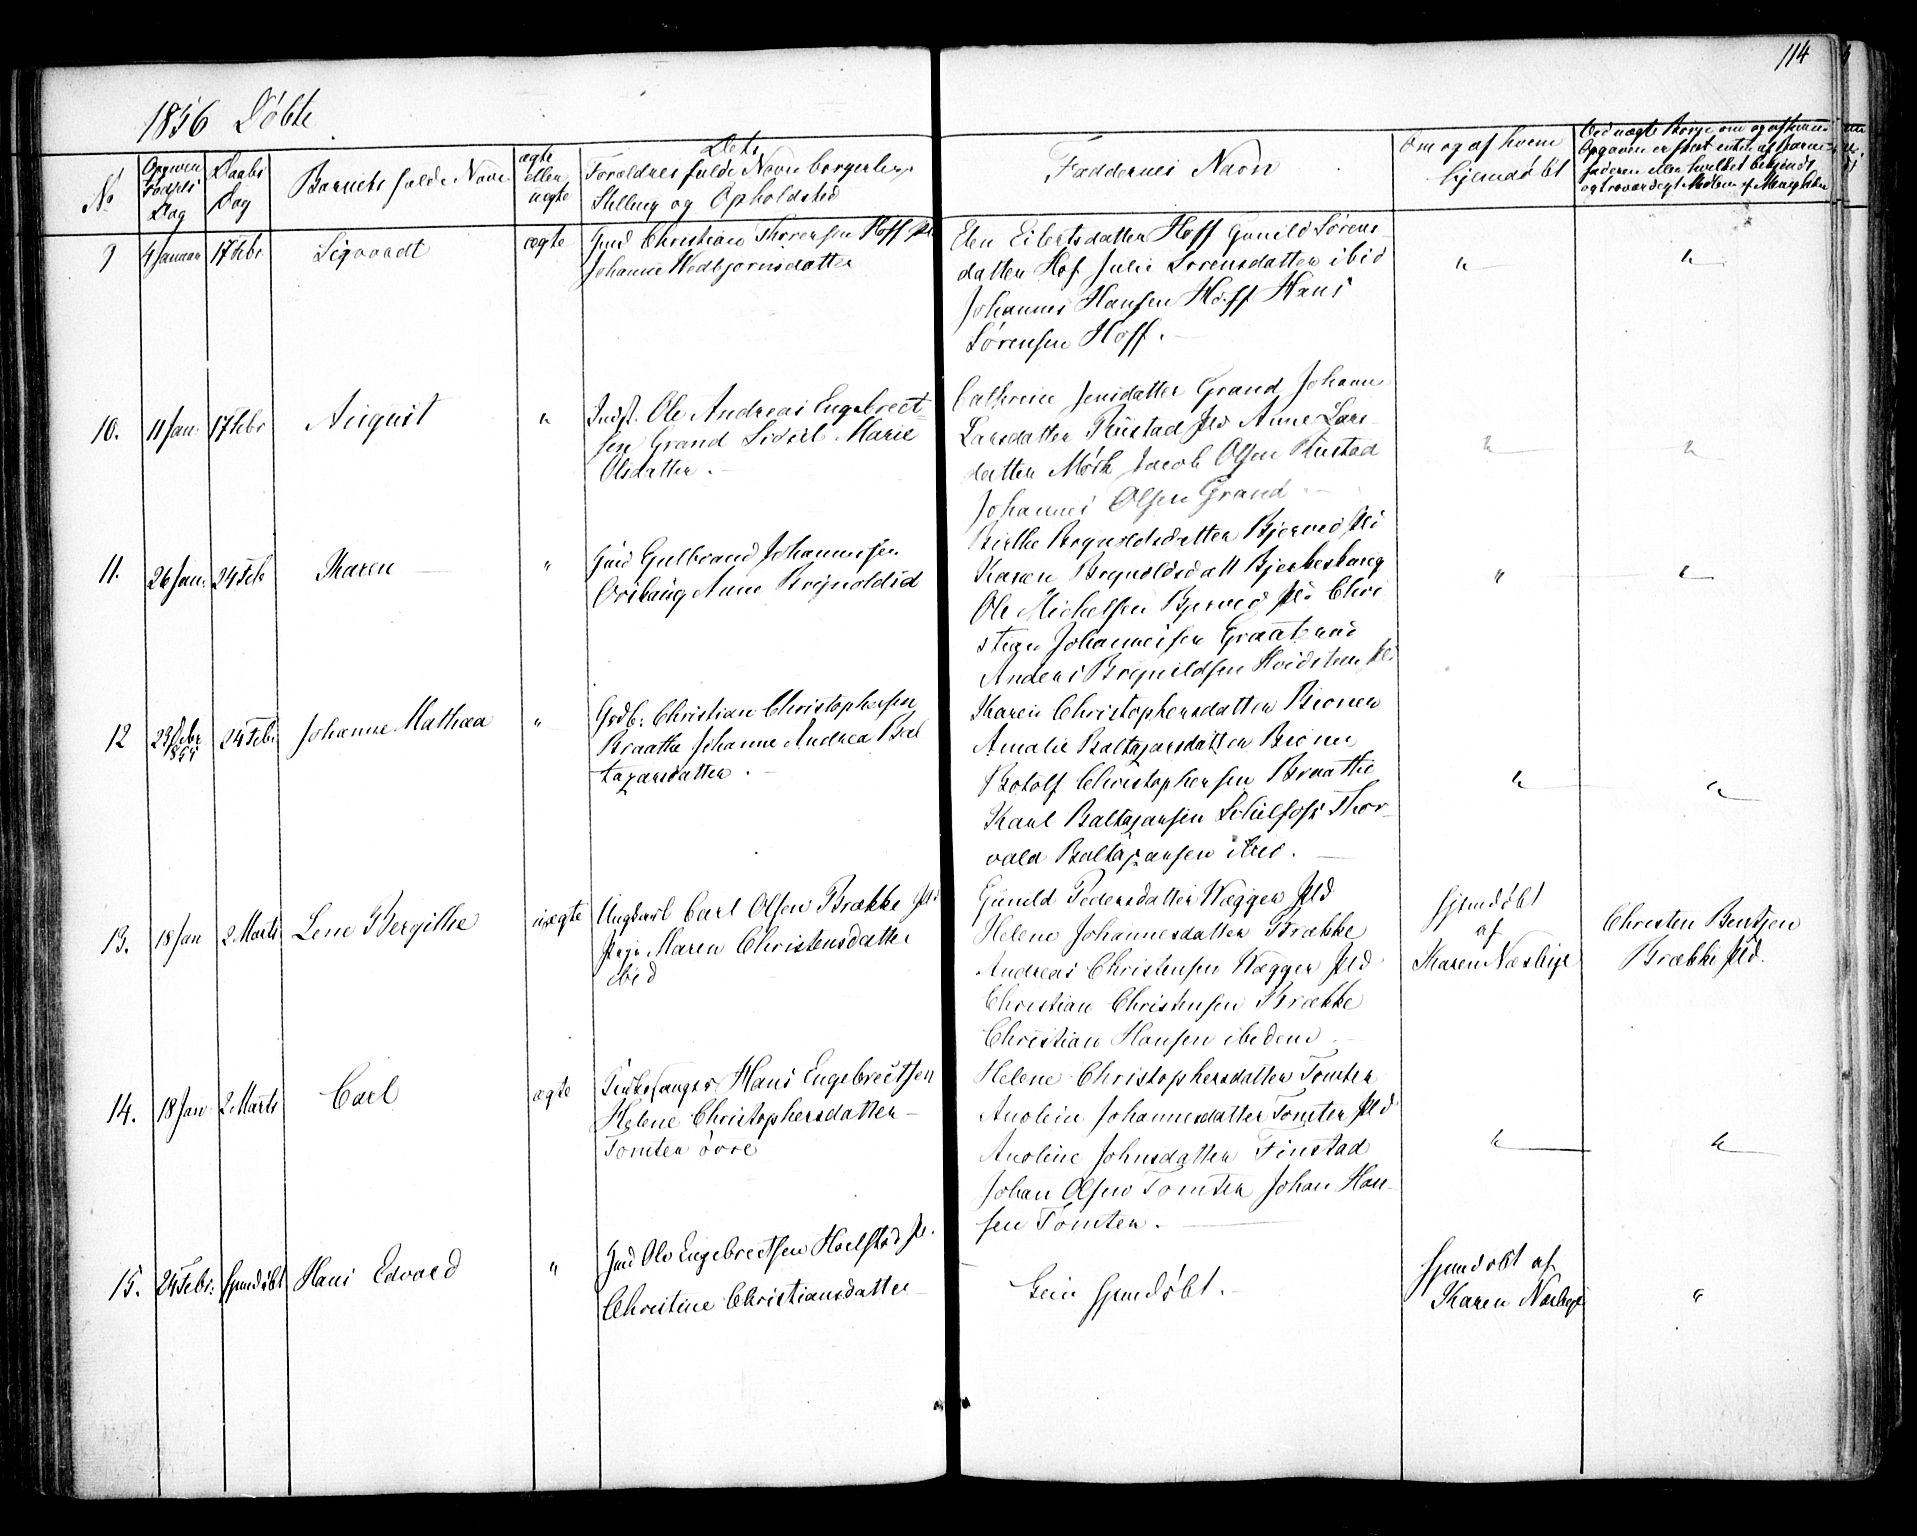 114
1856 Døbte
No
Opgiven Fødsels Dag
Daabs Dag
Barnets fulde Navn
ægte eller uægte
Dets Forældres fulde Navn borgerlige
Stilling og Opholdsted
Faddernes Navn
Om og af hvem
hjemdøbt
Ved uægte Børn om og af hvem
Opgaven er skeet enten af Barne-
faderen eller hvilket bekjendt
9 4 Januar 17 Febr Sigvardt ægte
Gmd Christian Thorensen Hoff Pld
Johanne Wedbjørnsdatter
Elen Eilertsdatter Hoff Gunild Sørens-
datter Hof Julie Sørensdatter ibid
Johannes Hansen Hoff Hans
Sørensen Hoff.
10. 11 Jan 17 Febr August "
Indst. Ole Andreas Engebrect-
sen Grand Sidsel Marie
Olsdatter.
Cathrine Jensdatter Grand Johanne
Larsdatter Rustad Pld Anne Lars-
datter Mørk Jacob Olsen Rustad
Johannes Olsen Grand
11. 26 Jan. 24 Feb Karen "
Gmd Gulbrand Johannessen
Anne Brynoldsd
Birthe Brynoldsdatter Bjerved Pld
Karen Brynoldsdatt Bjerkeskoug
Ole Michelsen Bjerved Pld Chri
stian Johannessen
Anders Brynildsen Hvidsteen Pld
12 23 Debr 1855 24 Feb Johanne Mathea "
Grdb. Christian Christophersen
Braathe Johanne Andrea Bal
tazarsdatter.
Karen Christophersdatter Bionen
Amalie Baltazarsdatter Bionen
Botolf Christophersen Braathe
Karl Baltazarsen Thor-
vald Baltazarsen ibid.
13. 18 Jan 2 Marts Lene Bergithe uægte
Ungkarl Carl Olsen Brække Pld
Pige Maren Christensdatter
ibid
Gunild Pedersdatter Vægger Pld
Helene Johannesdatter Brække
Andreas Christensen Vægger Pld
Christian Christensen Brække
Christian Hansen ibidem
Hjemdøbt
af
Karen Næsbye
Christen Bentsen
Brække Pld.
14. 18 Jan 2 Marts Carl ægte
Kirkesanger Hans Engebrectsen
Helene Christophersdatter
Tomter øvre
Helene Christophersdatter Tomter
Anolein Johannesdatter Tomter Pld
Anoline Johnsdatter Finstad
Johan Olsen Tomter Johan Han-
sen Tomter.
15. 24 Febr. hjemdøbt Hans Edvard "
Gmd Ole Engebrectsen Haelstad Pl.
Christine Christiansdatter
Hjemdøbt.
hjemdøbt af
Karen Næsbye